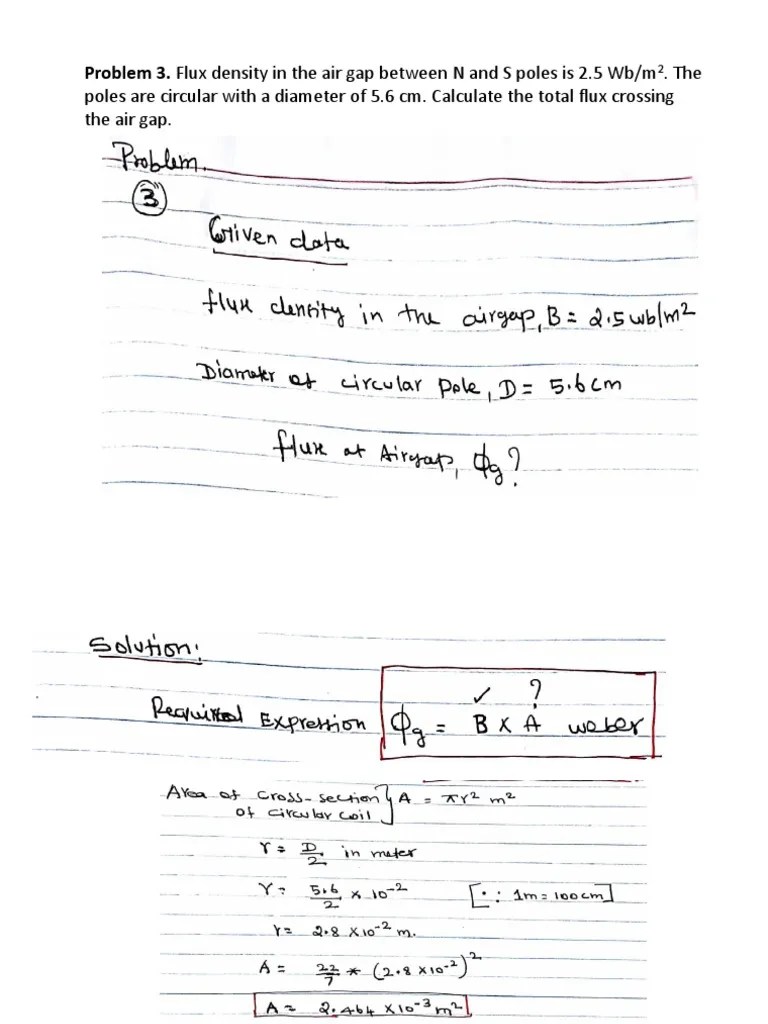 Problem 3. Flux density in the air gap between N and S poles is 2.5 Wb/m². The
poles are circular with a diameter of 5.6 cm. Calculate the total flux crossing
the air gap.
Problem.
3
Given data
flux density in the airgap, B = 2.5 wb/m²
Diameter of circular pole, D = 5.6 cm
flux at Airgap, ϕg?
Solution:
✓ ?
Required Expression ϕg = B x A weber
Area of cross-section } A = πr² m²
of circular coil
r = D/2 in meter
r = 5.6/2 x 10⁻² [∵ 1m = 100cm]
r = 2.8 x 10⁻² m.
A = 22/7 * (2.8 x 10⁻²)²
A = 2.464 x 10⁻³ m²